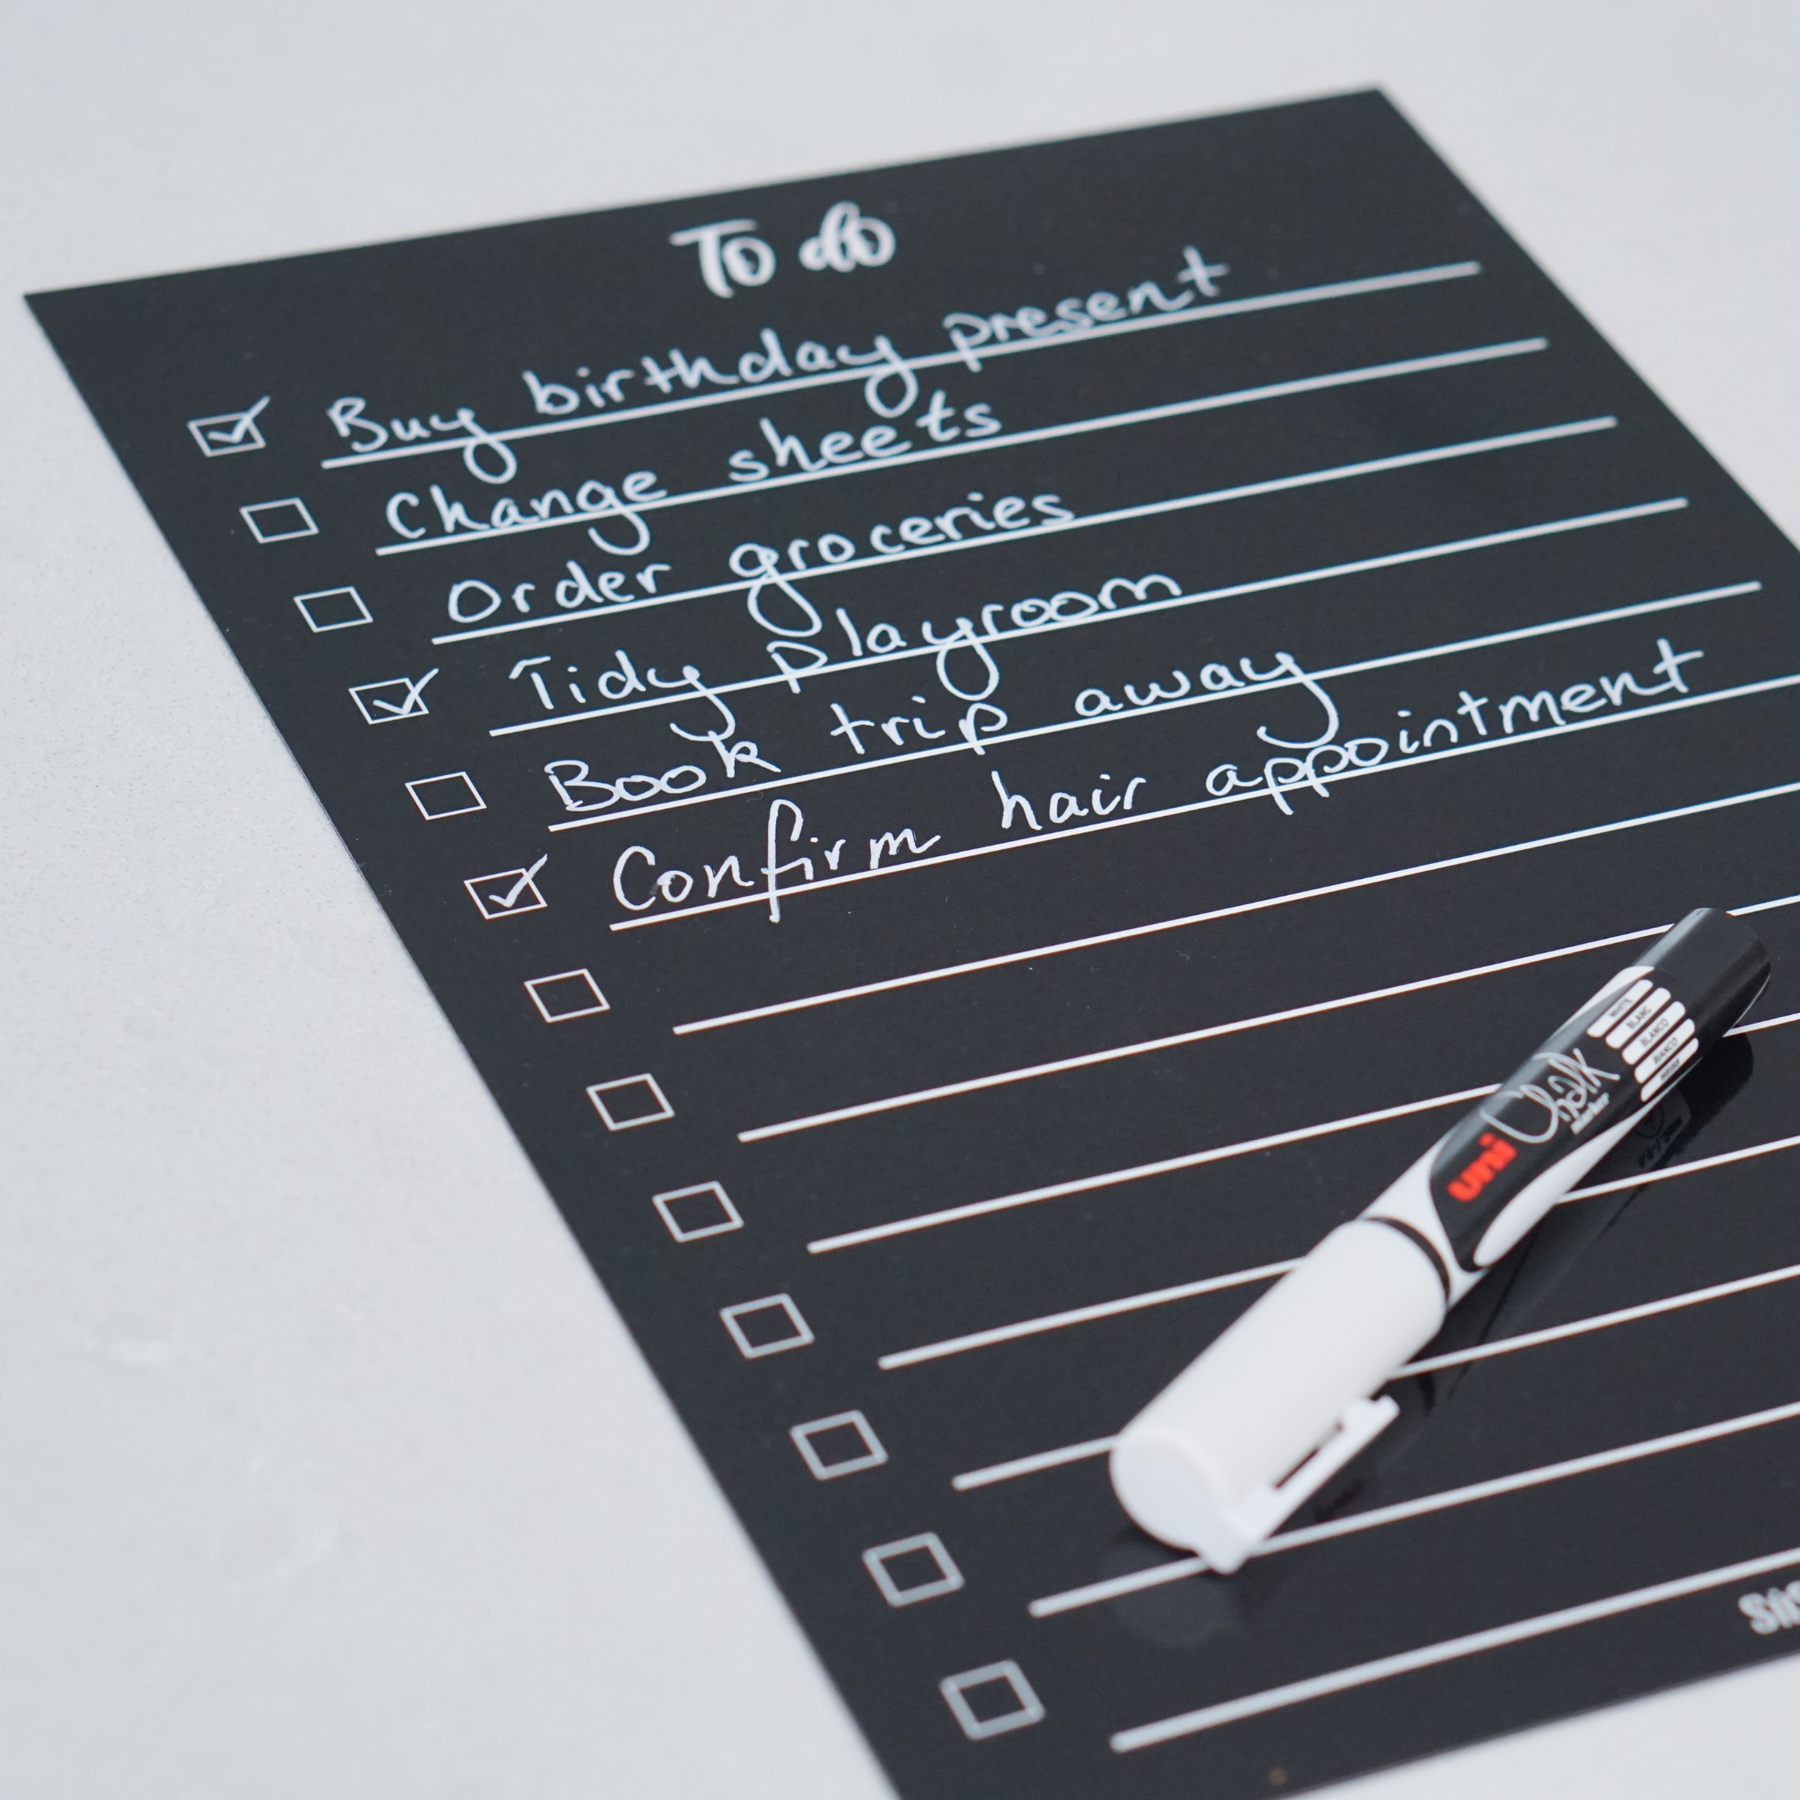 To do
Buy birthday present
Change sheets
Order groceries
Tidy playroom
Book trip away
Confirm hair appointment
WHITE
BLANC
BLANCO
BIANCO
uni Chalk
marker